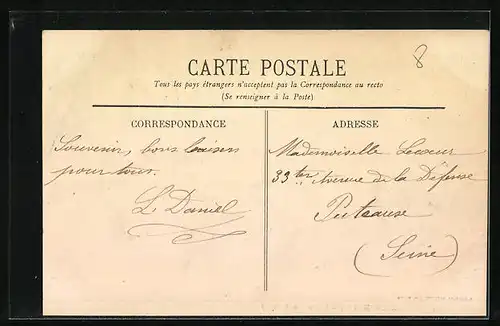 8
CARTE POSTALE
Tous les pays étrangers n'acceptent pas la Correspondance au recto
(Se renseigner à la Poste)
CORRESPONDANCE
Souvenir, bons baisers
pour tous.
L. Daniel
ADRESSE
Mademoiselle Lesueur
33 ter Avenue de la Défense
Puteaux
(Seine)